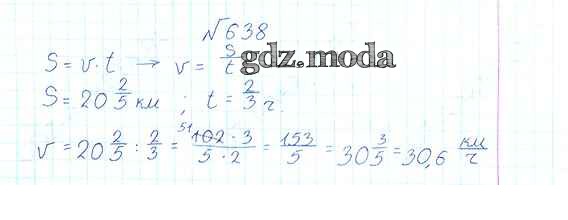 №638
S = v · t → v = S/t gdz.moda
S = 20 2/5 км ; t = 2/3 ч.
v = 20 2/5 : 2/3 = 51 102 · 3 / 5 · 2 = 153/5 = 30 3/5 = 30,6 км/ч